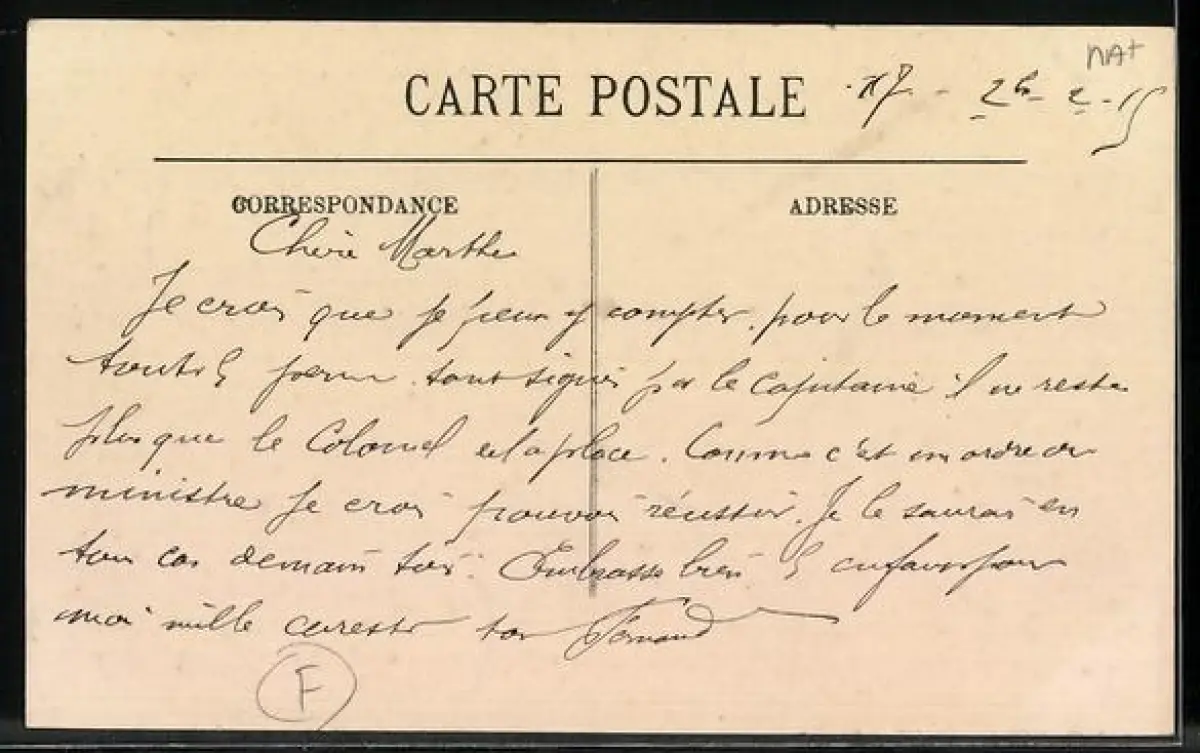 NAT
CARTE POSTALE
26-2-15
CORRESPONDANCE
ADRESSE
Chérie Marthe
Je crois que je peux y compter, pour le moment
toutes les perm. sont signées par le Capitaine il ne reste
plus que le Colonel et la place. Comme c'est un ordre du
ministre je crois pouvoir réussir. Je le saurai en
tous cas demain soir. Embrasse bien les enfants pour
moi mille caresses ton Fernand
F